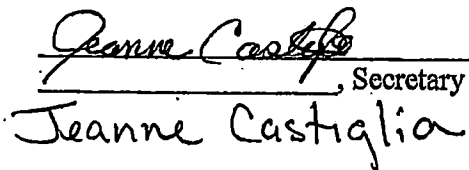 Jeanne Castiglia
, Secretary
Jeanne Castiglia